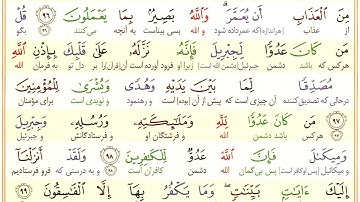 مِنَ الْعَذَابِ أَن يُعَمَّرَ وَاللَّهُ بَصِيرٌ بِمَا يَعْمَلُونَ ﴿٩٦﴾ قُلْ
از عذاب [هراندازه]که عمرداده شود و الله بسی بیناست به آنچه می کنند بگو
مَن كَانَ عَدُوًّا لِّجِبْرِيلَ فَإِنَّهُ نَزَّلَهُ عَلَى قَلْبِكَ بِإِذْنِ اللَّهِ
هرکس که باشد دشمن
مُصَدِّقًا لِّمَا بَيْنَ يَدَيْهِ وَهُدًى وَبُشْرَى لِلْمُؤْمِنِينَ ﴿٩٧﴾
درحالی که تصدیق کننده آن چیزی است که پیش از آن [بوده] است و رهنمود و نویدی است برای مؤمنان
مَن كَانَ عَدُوًّا لِّلَّهِ وَمَلَائِكَتِهِ وَرُسُلِهِ وَجِبْرِيلَ
هرکس که باشد دشمن الله و فرشتگان او و فرستادگانش و جبرئیل
وَمِيكَالَ فَإِنَّ اللَّهَ عَدُوٌّ لِّلْكَافِرِينَ ﴿٩٨﴾ وَلَقَدْ أَنزَلْنَا
و میکائیل الله دشمن کافران است و به درستی که فرو فرستادیم
إِلَيْكَ آيَاتٍ بَيِّنَاتٍ وَمَا يَكْفُرُ بِهَا إِلَّا الْفَاسِقُونَ ﴿٩٩﴾